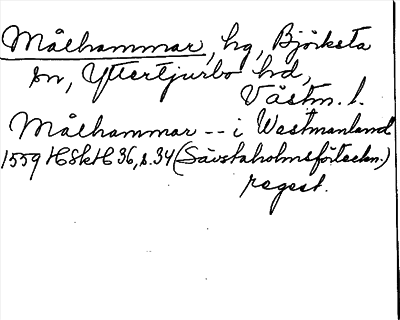 Målhammar, hg, Björksta
sn, Yttertjurbo hd,
Västm. l.
Målhammar -- i Westmanland
1559 HSkH 36, s. 34 (Sävstaholmsförteckn.)
regest.